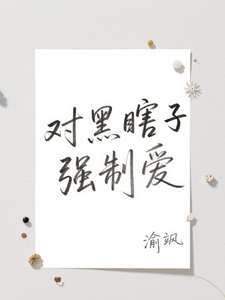 对黑瞎子
强制爱
渝飒